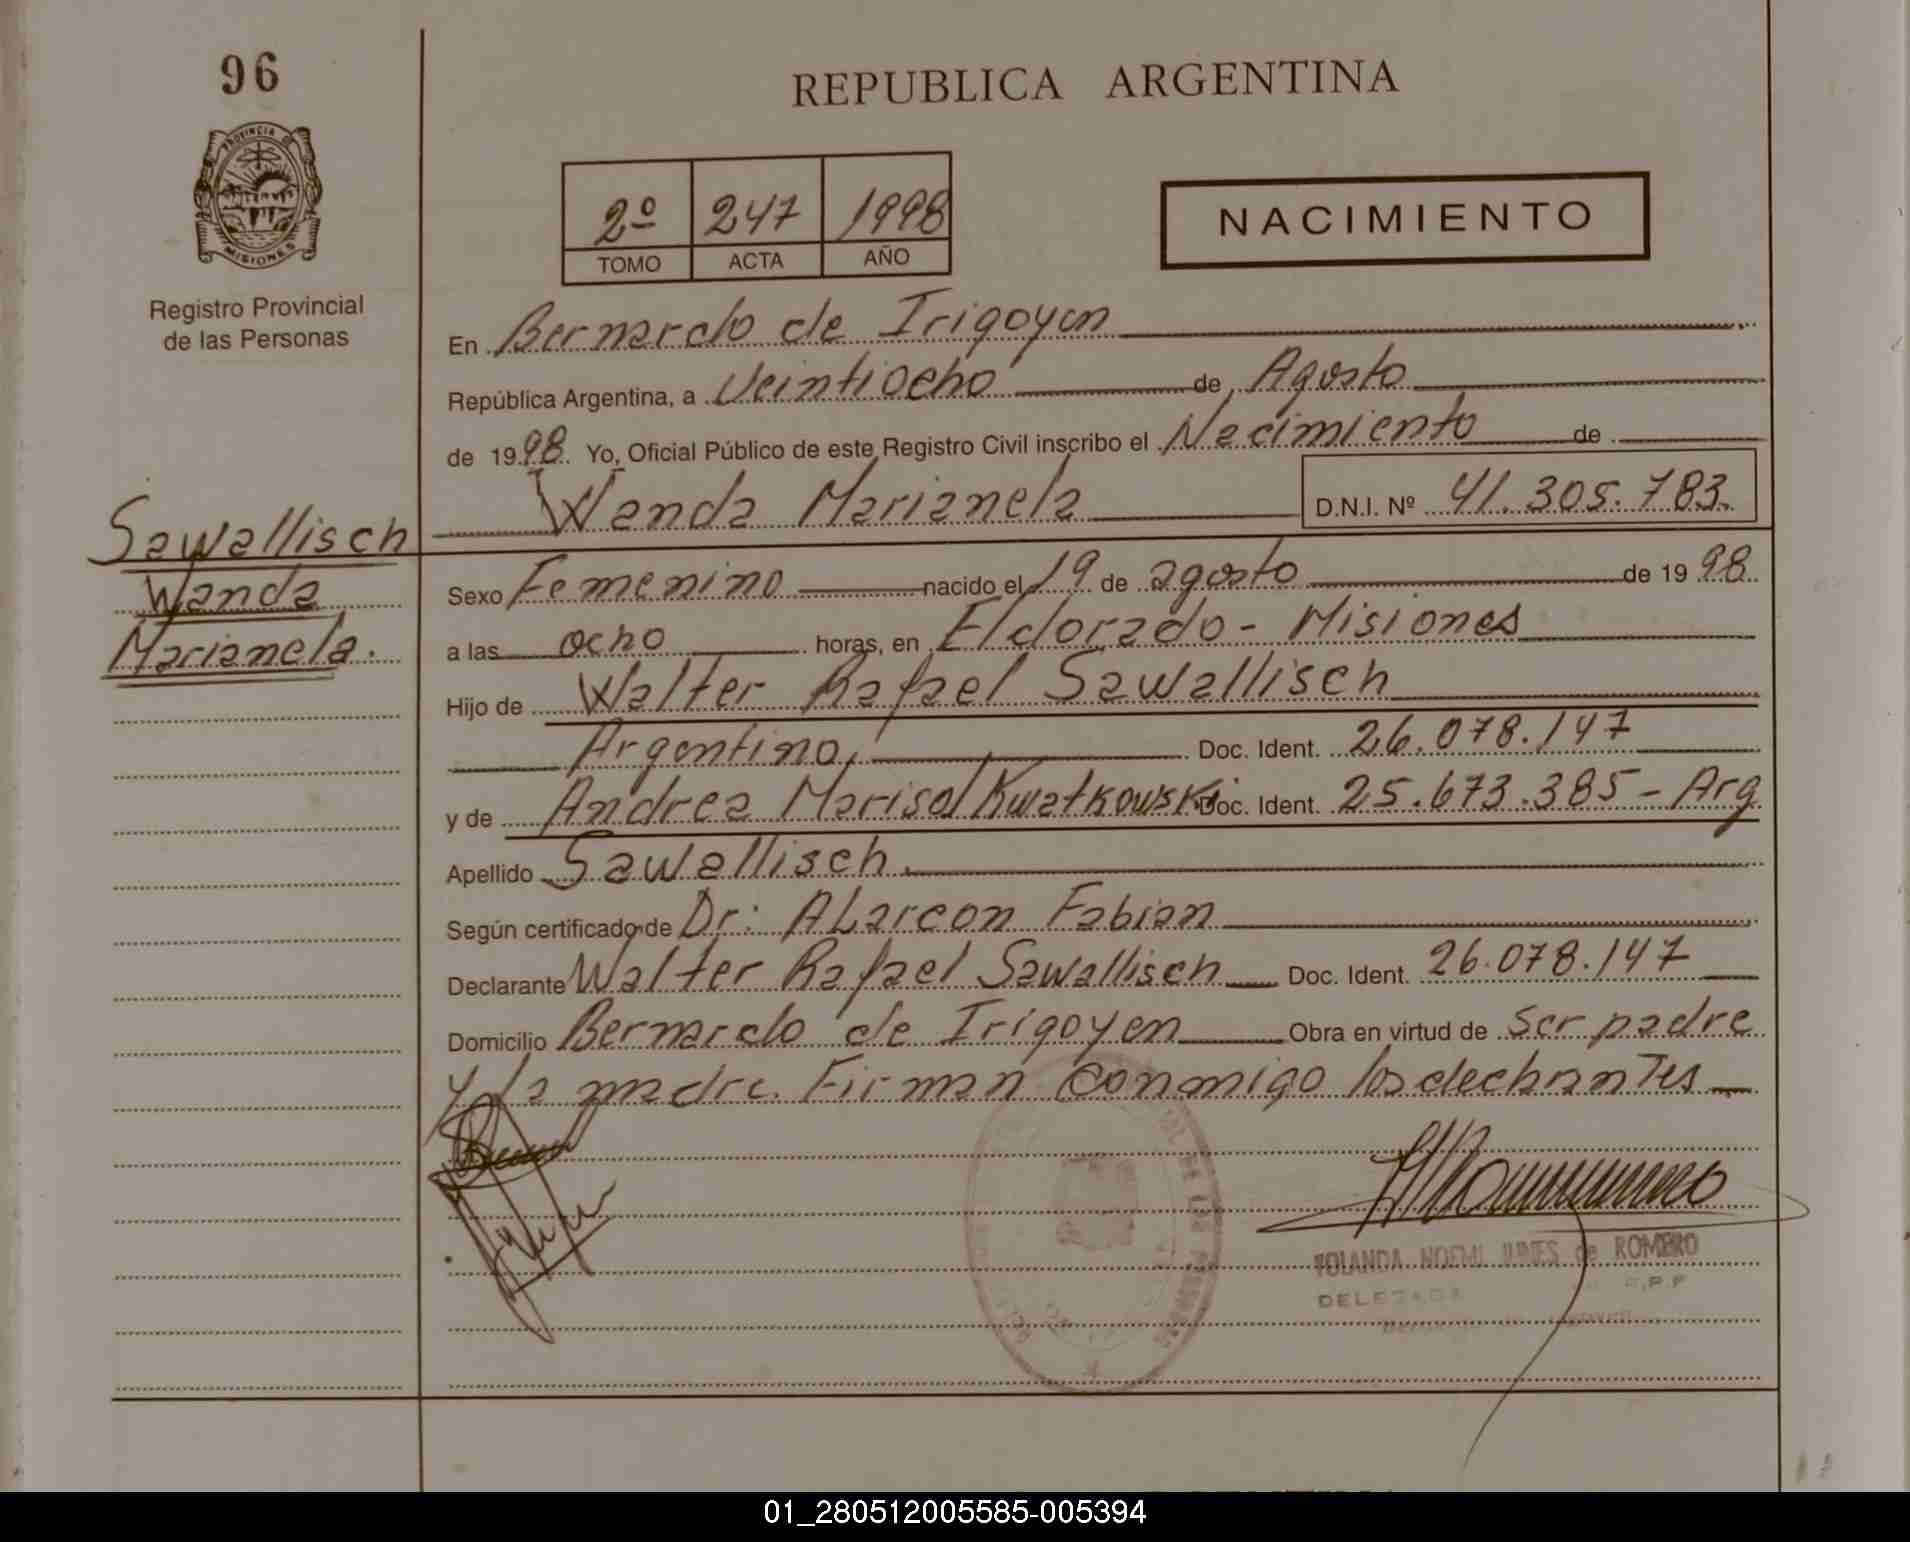 96
REPUBLICA ARGENTINA
PROVINCIA DE
MISIONES
2º 247 1998
TOMO ACTA AÑO
NACIMIENTO
Registro Provincial
de las Personas
En Bernardo de Irigoyen
República Argentina, a Veintiocho de Agosto
de 1998 Yo, Oficial Público de este Registro Civil inscribo el Nacimiento de
Wanda Marianela D.N.I. Nº 41.305.783.
Sawallisch
Wanda
Marianela.
Sexo Femenino nacido el 19 de agosto de 1998
a las ocho horas, en Eldorado - Misiones
Hijo de Walter Rafael Sawallisch
Argentino, Doc. Ident. 26.078.147
y de Andrea Marisol Kwatkowski Doc. Ident. 25.673.385 - Arg
Apellido Sawallisch.
Según certificado de Dr: ALarcon Fabian
Declarante Walter Rafael Sawallisch Doc. Ident. 26.078.147
Domicilio Bernardo de Irigoyen Obra en virtud de ser padre
y la madre. Firman conmigo los declarantes
DE LAS PERSONAS
YOLANDA NOEMI de ROMERO
DELEGADA R.P.P
01_280512005585-005394